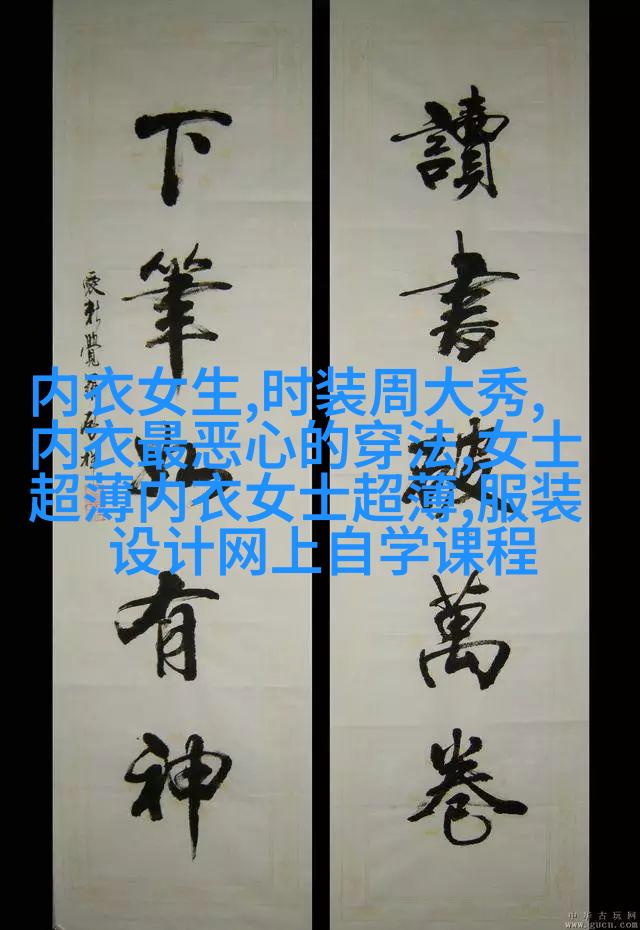 讀書破萬卷
下筆如有神
内衣女生,时装周大秀,
内衣最恶心的穿法,女士
超薄内衣女士超薄,服装
设计网上自学课程
中华古玩网
www.gucn.com